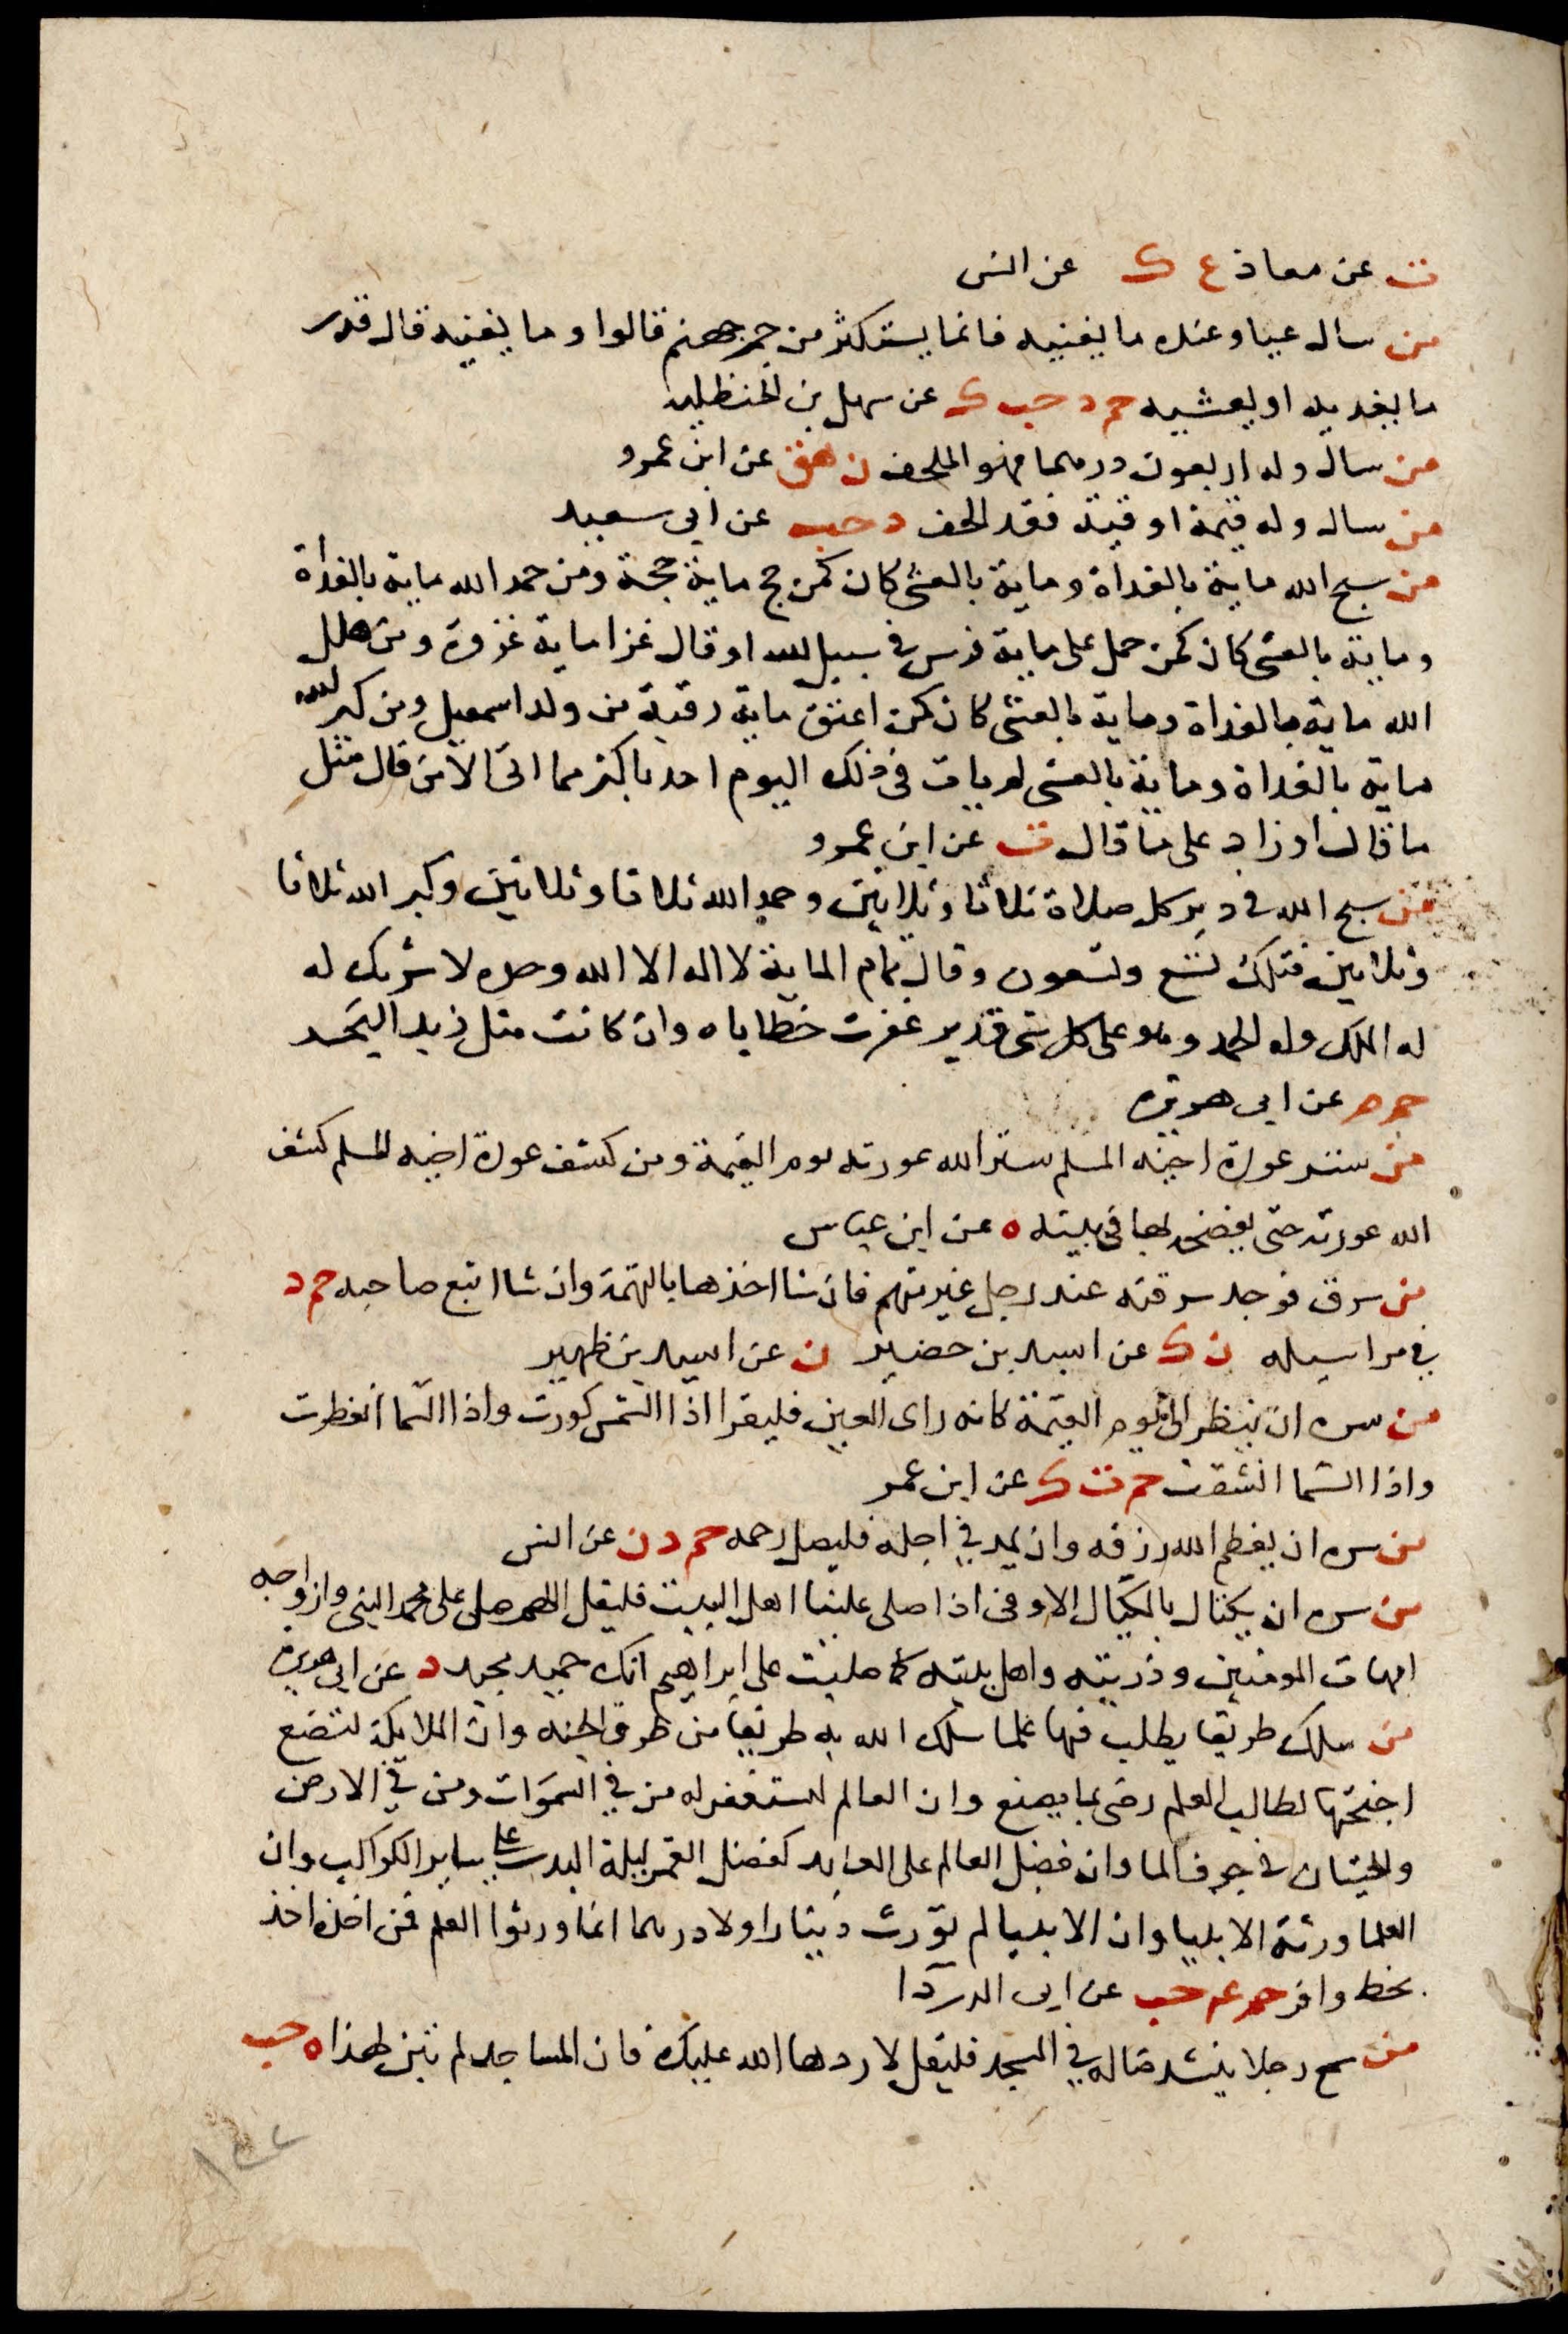 ت عن معاذ ع ك عن انس
من سال عيا وعنده ما يغنيه فانما يستكثر من جمر جهنم قالوا وما يغنيه قال قدر
ما يغديه او يعشيه حم د حب ك عن سهل بن الحنظليه
من سال وله اربعون درهما فهو الملحف ن هق عن ابن عمرو
من سال وله قيمة اوقية فقد الحف د حب عن ابي سعيد
من سبح الله ماية بالغداة وماية بالعشي كان كمن حج ماية حجة ومن حمد الله ماية بالغداة
وماية بالعشي كان كمن حمل على ماية فرس في سبيل الله او قال غزا ماية غزوة ومن هلل
الله ماية بالغداة وماية بالعشي كان كمن اعتق ماية رقبة من ولد اسمعيل ومن كبر الله
ماية بالغداة وماية بالعشي لم يات في ذلك اليوم احد باكثر مما اتى الا من قال مثل
ما قال او زاد على ما قال ت عن ابن عمرو
من سبح الله في دبر كل صلاة ثلاثا وثلاثين وحمد الله ثلاثا وثلاثين وكبر الله ثلاثا
وثلاثين فتلك تسع وتسعون وقال تمام الماية لا اله الا الله وحده لا شريك له
له الملك وله الحمد وهو على كل شي قدير غفرت خطاياه وان كانت مثل زبد البحر
حم م عن ابي هريرة
من ستر عورة اخيه المسلم ستر الله عورته يوم القيمة ومن كشف عورة اخيه المسلم كشف
الله عورته حتى يفضحه بها في بيته ه عن ابن عباس
من سرق فوجد سرقته عند رجل غير متهم فان شا اخذها بالقيمة وان شا اتبع صاحبه حم د
في مراسيله ن ك عن اسيد بن حضير ن عن اسيد بن ظهير
من سره ان ينظر الى يوم القيمة كانه راى العين فليقرا اذا الشمس كورت واذا السما انفطرت
واذا السما انشقت حم ت ك عن ابن عمر
من سره ان يعظم الله رزقه وان يمد في اجله فليصل رحمه حم د ن عن انس
من سره ان يكتال بالمكيال الاوفى اذا صلى علينا اهل البيت فليقل اللهم صل على محمد النبي وازواجه
امهات المومنين وذريته واهل بيته كما صليت على ابراهيم انك حميد مجيد د عن ابي هريرة
من سلك طريقا يطلب فيها علما سلك الله به طريقا من طرق الجنه وان الملايكة لتضع
اجنحتها لطالب العلم رضى بما يصنع وان العالم لستغفر له من في السموات ومن في الارض
والحيتان في جوف الما وان فضل العالم على العابد كفضل القمر ليلة البدر على ساير الكواكب وان
العلما ورثة الانبيا وان الانبيا لم تورث دينارا ولا درهما انما ورثوا العلم فمن اخذه اخذ
بحظ وافر حم عم حب عن ابي الدردا
من سمع رجلا ينشد ضاله في المسجد فليقل لا ردها الله عليك فان المساجد لم تبن لهذا ه حب